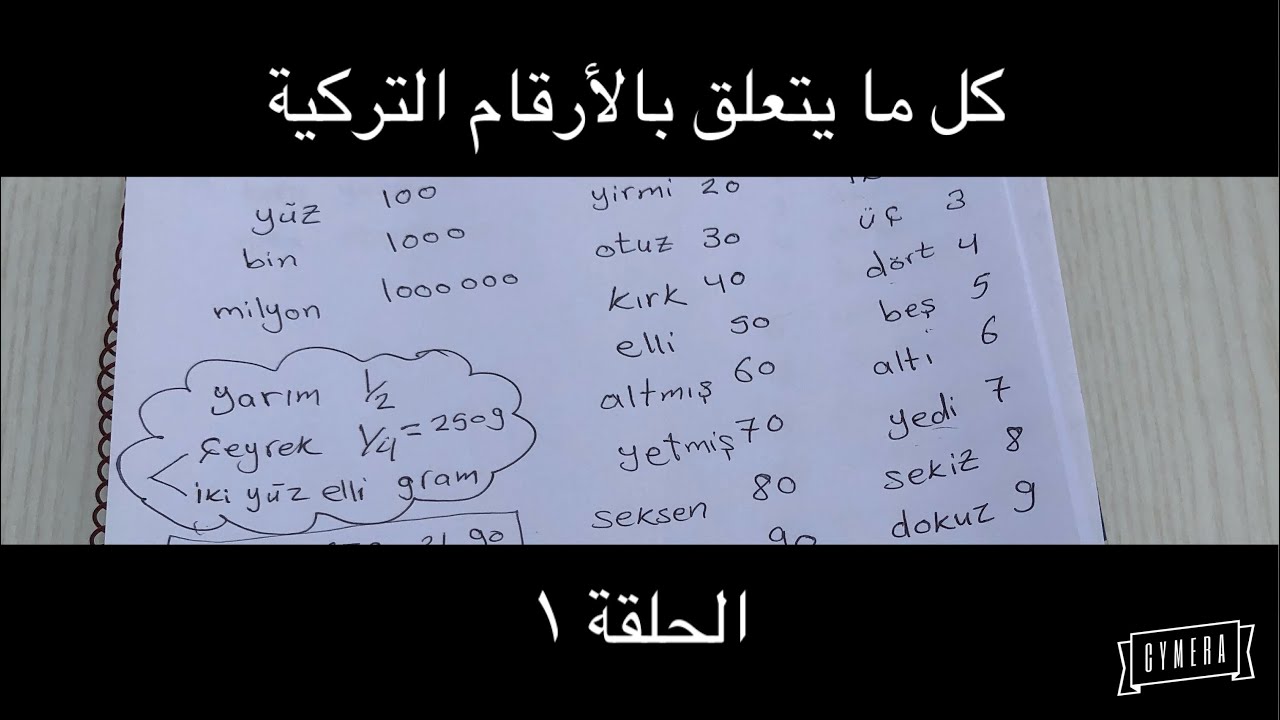 كل ما يتعلق بالأرقام التركية
yüz 100
bin 1000
milyon 1000 000
yarım 1/2
çeyrek 1/4 = 250g
iki yüz elli gram
90
yirmi 20
otuz 30
kırk 40
elli 50
altmış 60
yetmiş 70
seksen 80
90
üç 3
dört 4
beş 5
alti 6
yedi 7
sekiz 8
dokuz 9
الحلقة ١
CYMERA